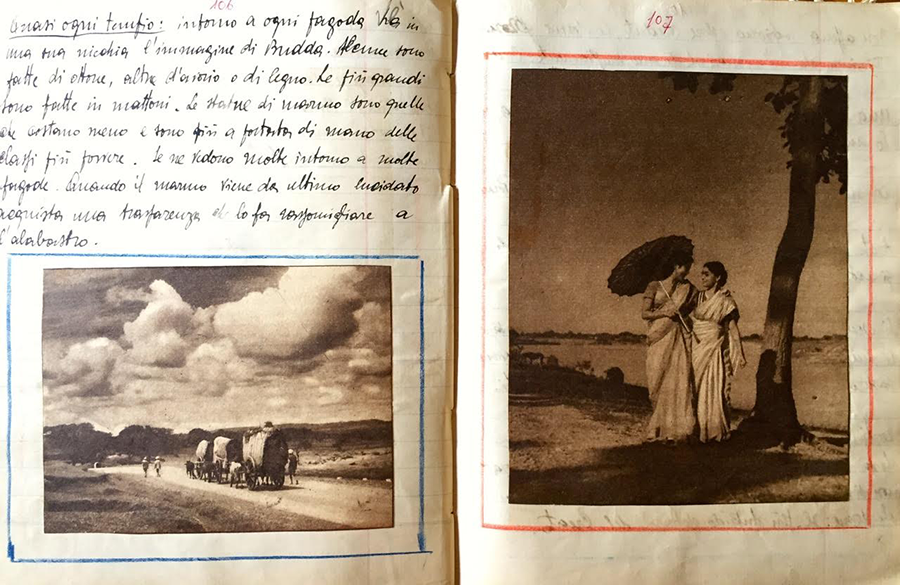 106
Quasi ogni tempio: intorno a ogni pagoda v'è in
una sua nicchia l'immagine di Budda. Alcune sono
fatte di ottone, altre d'avorio o di legno. Le più grandi
sono fatte in mattoni. Le statue di marmo sono quelle
che costano meno e sono più a portata di mano delle
classi più povere. Se ne vedono molte intorno a molte
pagode. Quando il marmo viene da ultimo lucidato
acquista una trasparenza che lo fa rassomigliare a
l'alabastro.
107